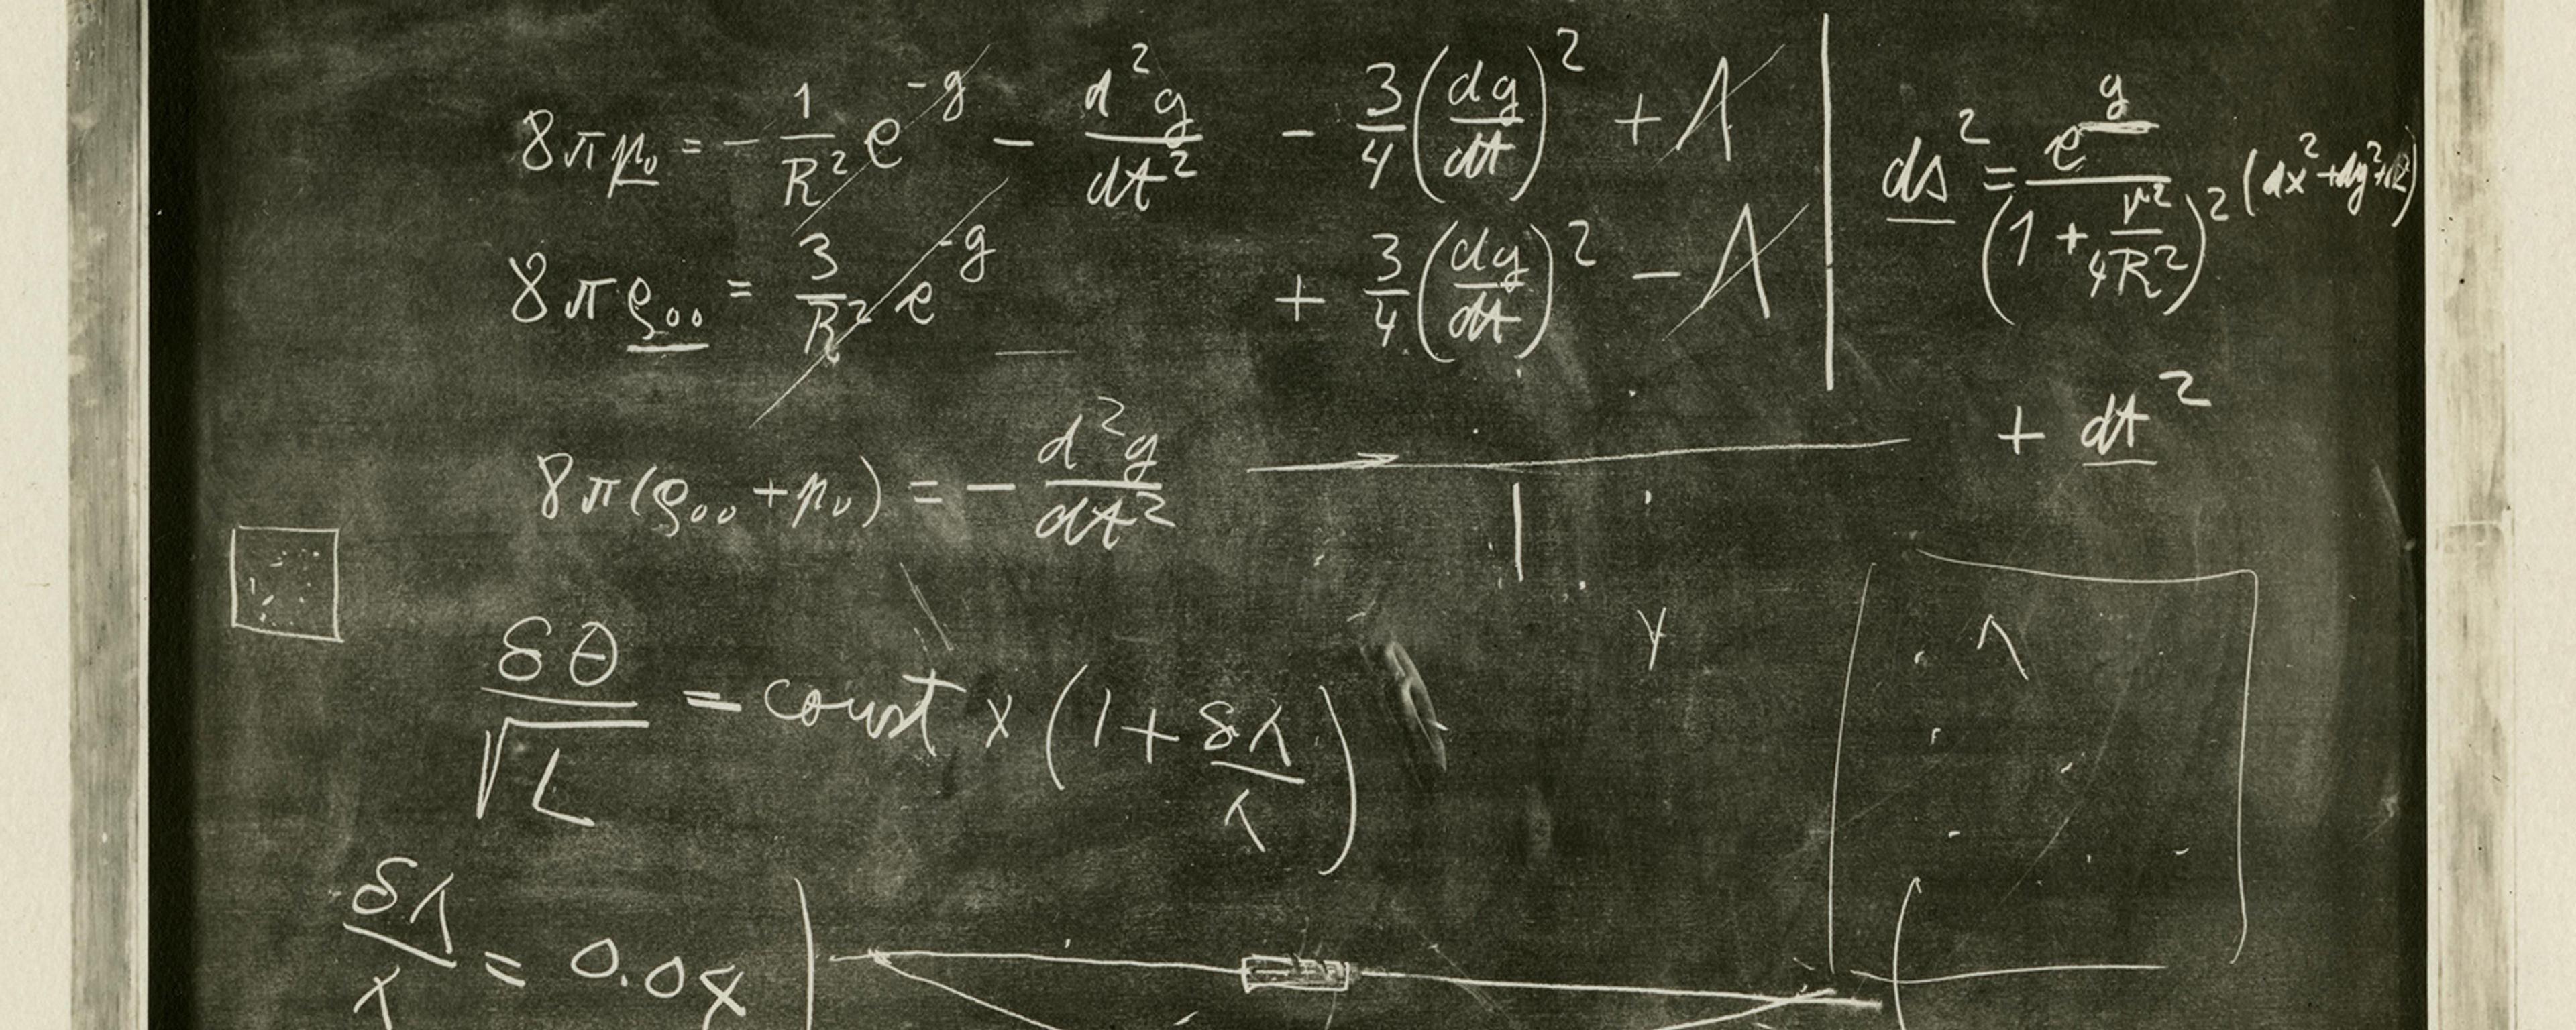 8πp₀ = − 1/R² e^−g − d²g/dt² − 3/4 (dg/dt)² + Λ
8πρ₀₀ = 3/R² e^−g + 3/4 (dg/dt)² − Λ
ds² = e^g/(1 + r²/4R²)² (dx²+dy²+dz²)
+ dt²
8π(ρ₀₀ + p₀) = − d²g/dt²
δθ/√L = const × (1 + δλ/λ)
γ
λ
δλ/λ = 0.0